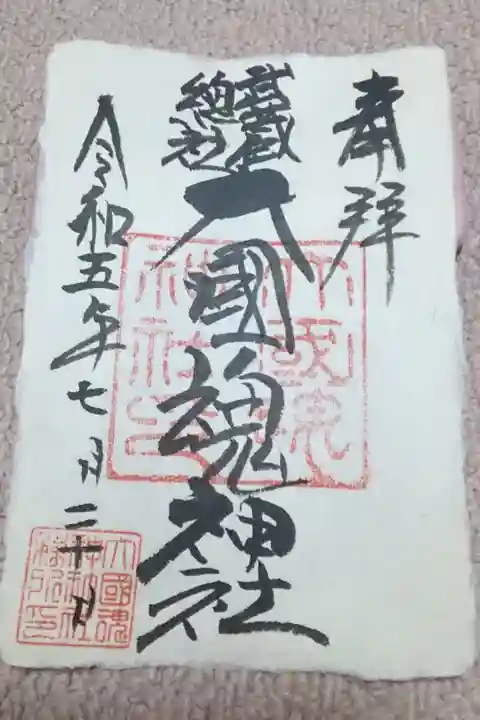 奉拝
武蔵
總社
大國魂神社
令和五年七月二十日
大國魂
神社之印
大國魂
神社